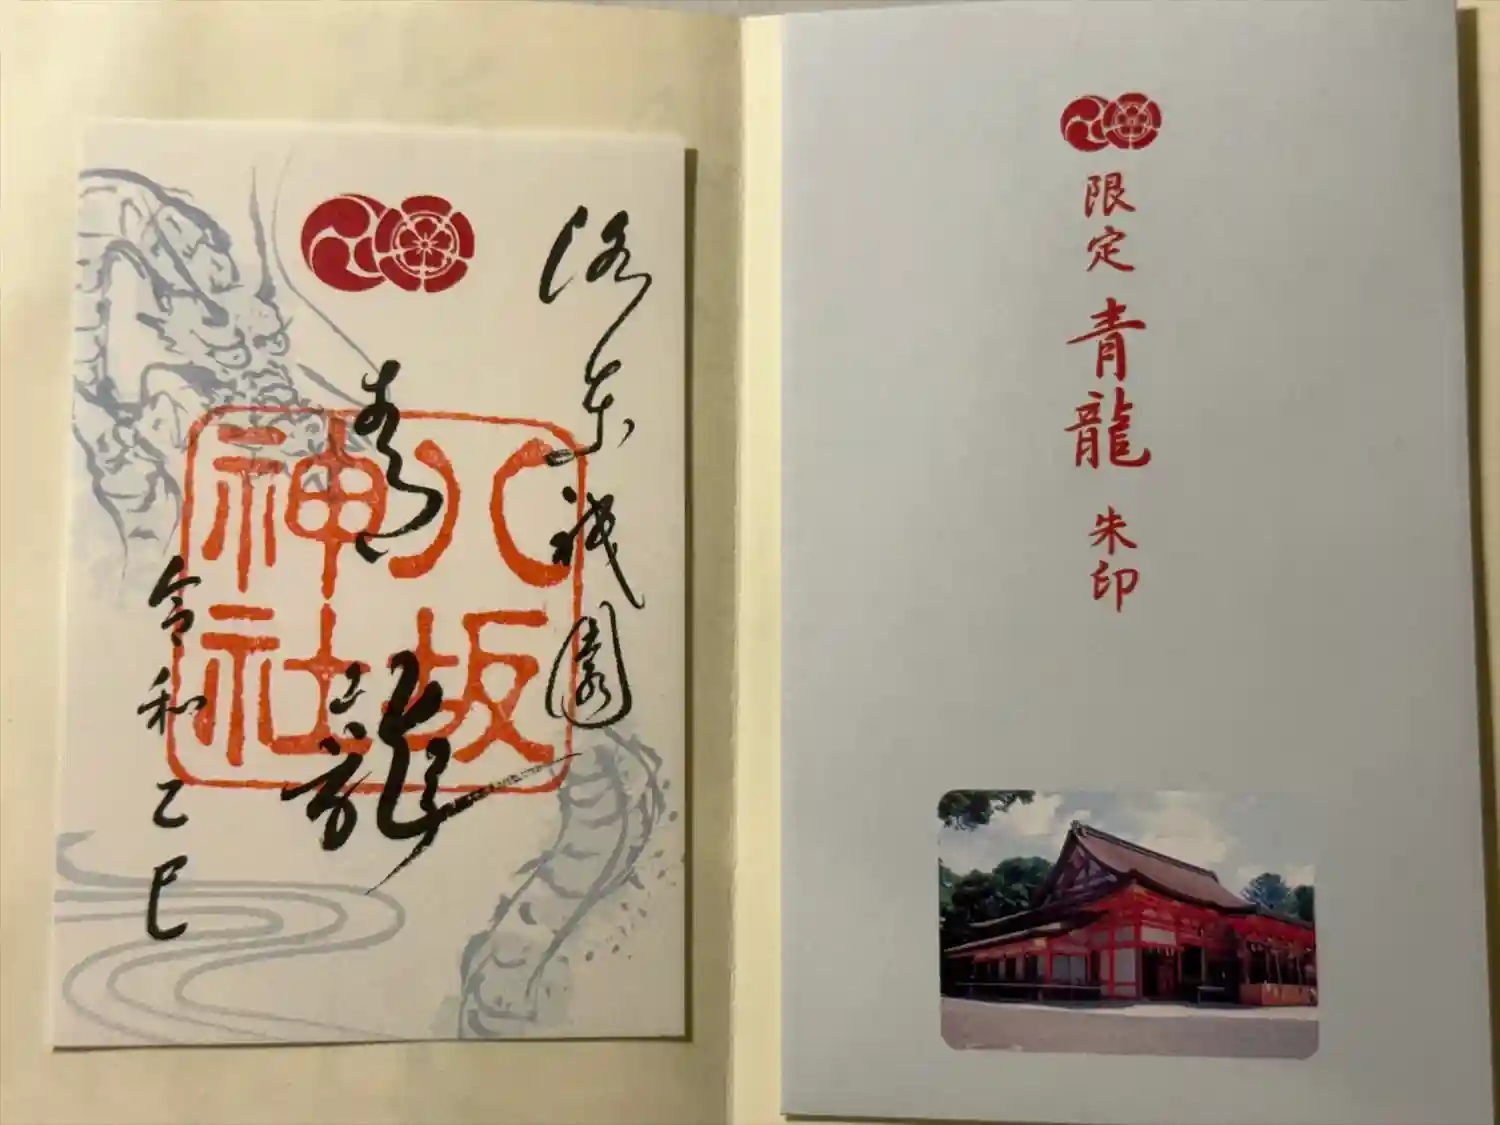 洛東祇園
青龍
八坂
神社
令和乙巳
限定 青龍 朱印